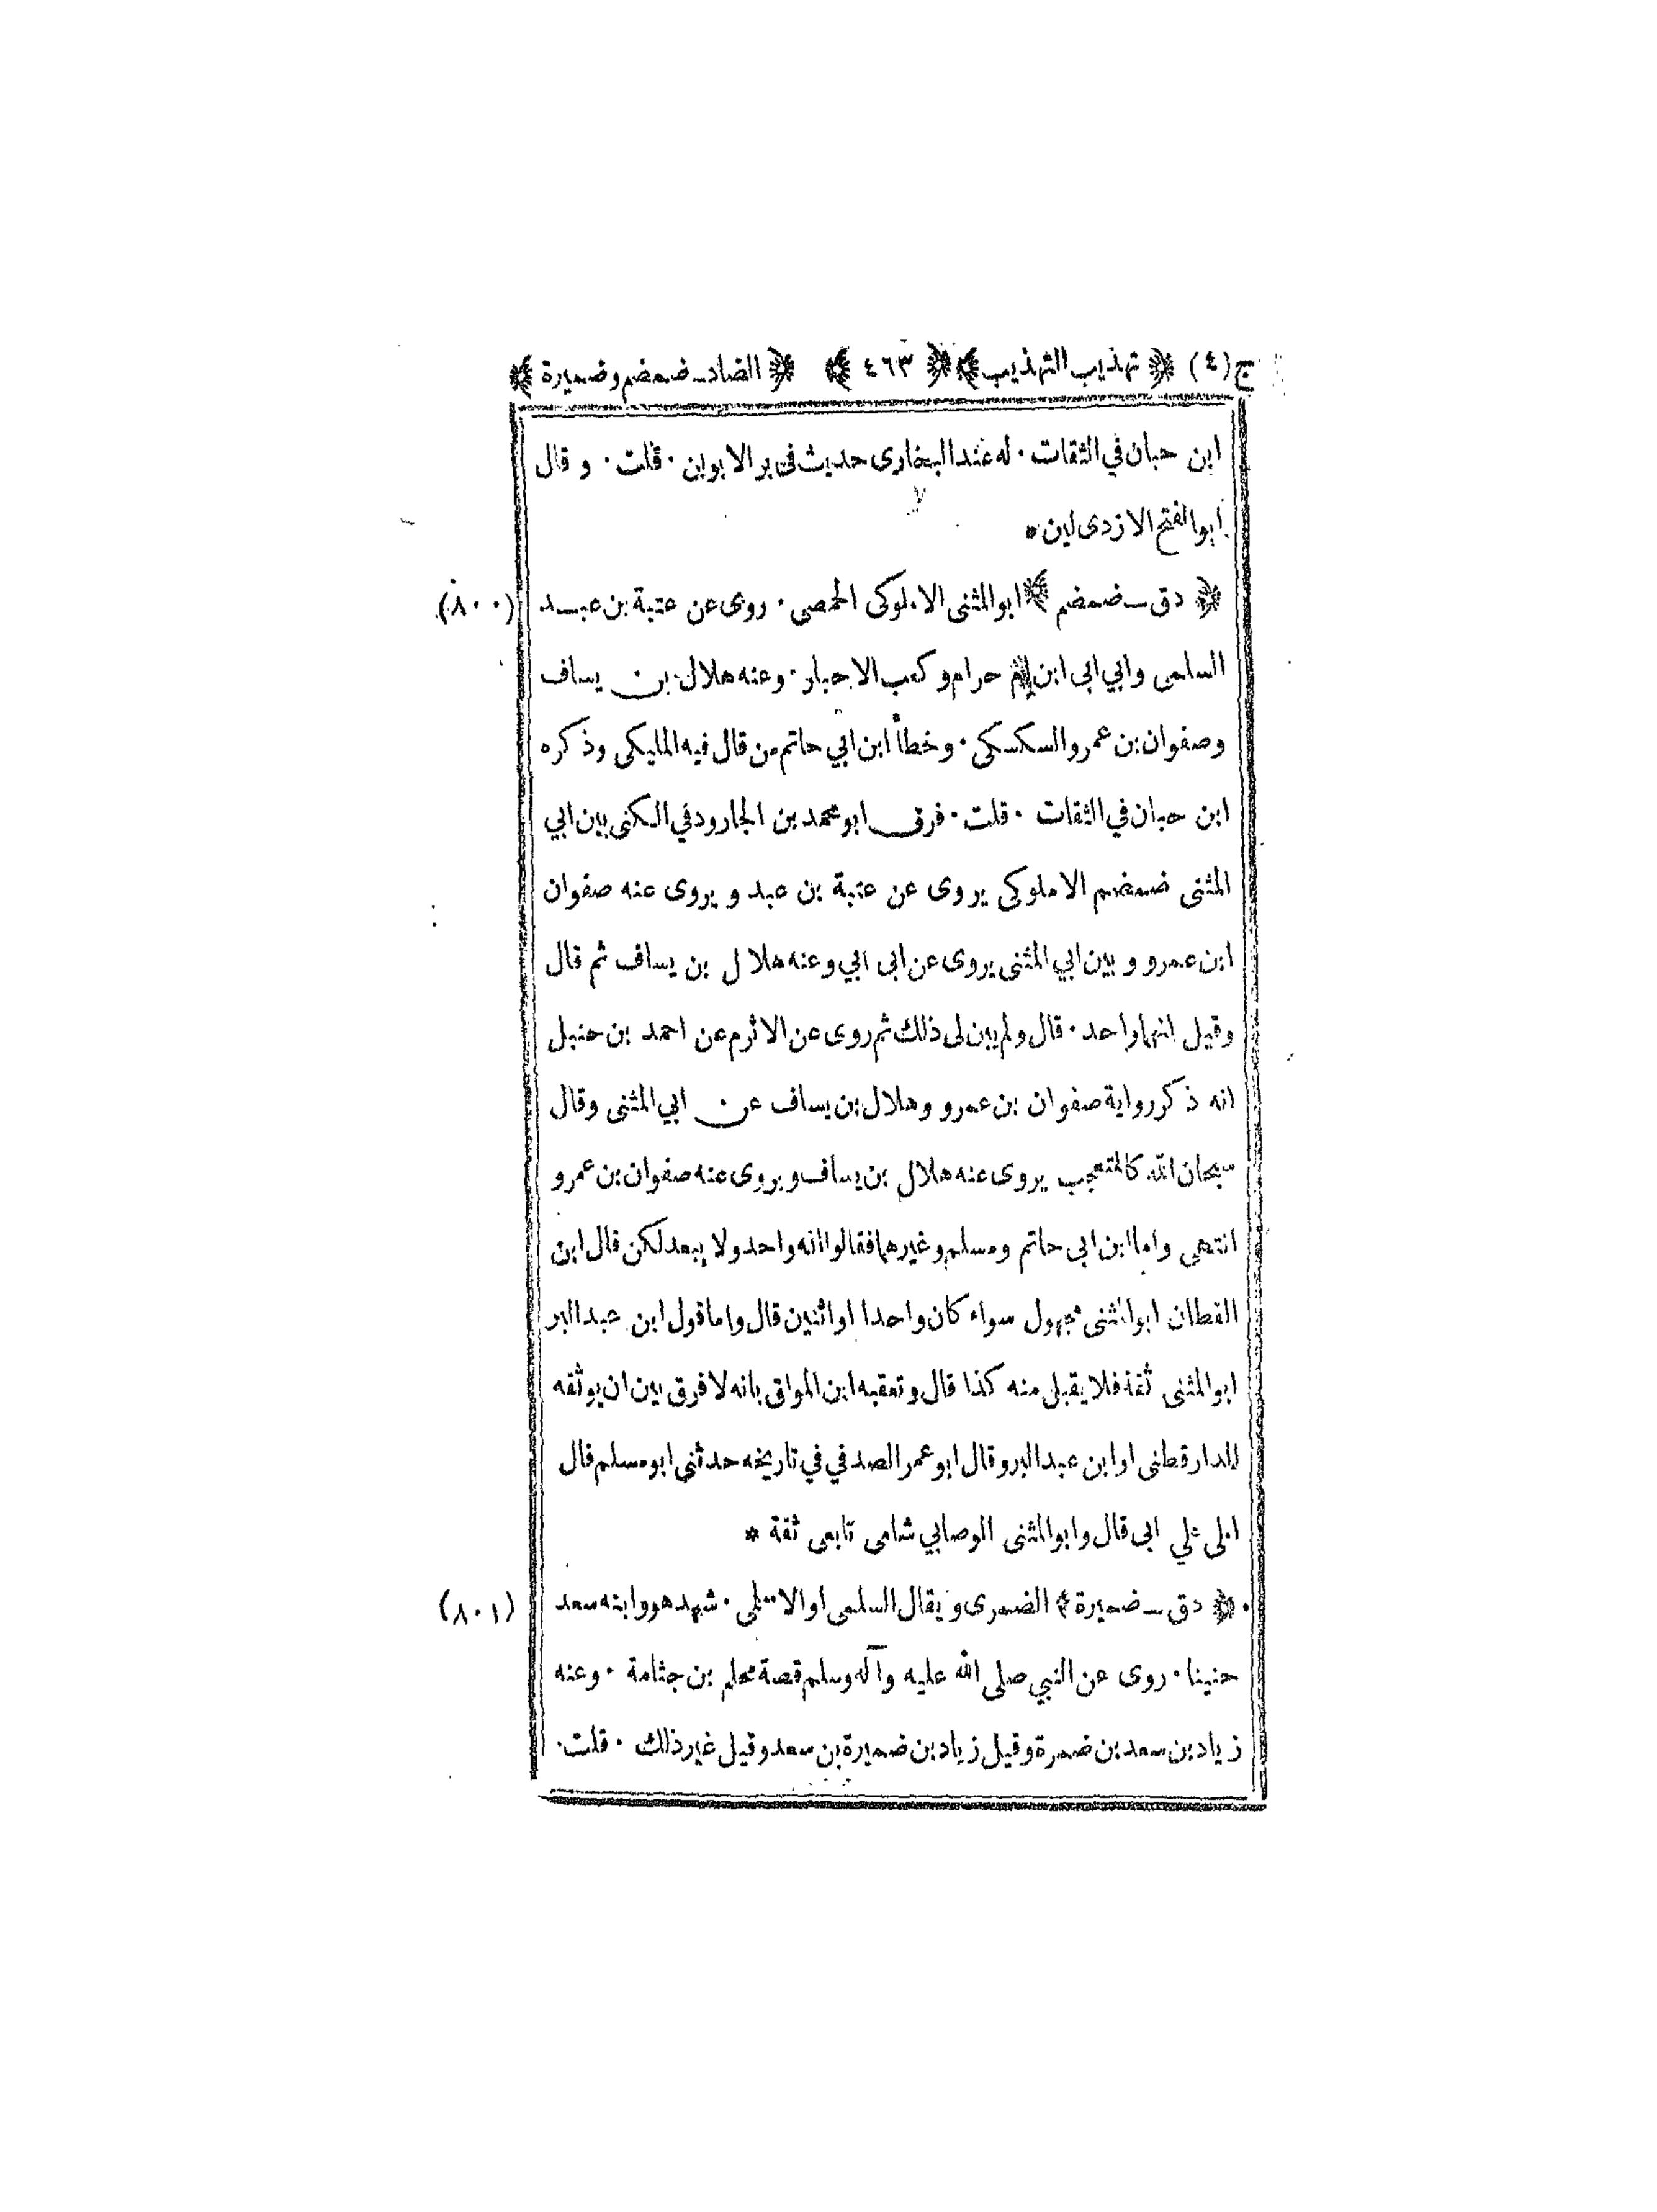 ج (٤) ﴿ تهذيب التهذيب ﴾ ﴿ ٤٦٣ ﴾ ﴿ الضاد ـ ضمضم و ضميرة ﴾
ابن حبان في الثقات ٠ له عند البخارى حديث فى بر الابوين ٠ قلت ٠ و قال
ابو الفتح الازدى لين *
﴿ دق ـ ضمضم ﴾ ابو المثنى الاملوكى الحمصى ٠ روى عن عتبة بن عبد (٨٠٠)
السلمى وابي ابى ابن ام حرام و كعب الاحبار ٠ وعنه هلال بن يساف
وصفوان بن عمرو السكسكى ٠ وخطأ ابن ابي حاتم من قال فيه المليكى وذكره
ابن حبان في الثقات ٠ قلت ٠ فرق ابو محمد بن الجارود في الكنى بين ابي
المثنى ضمضم الاملوكى يروى عن عتبة بن عبد و يروى عنه صفوان
ابن عمرو و بين ابي المثنى يروى عن ابى ابي وعنه هلال بن يساف ثم قال
وقيل انهما واحد ٠ قال ولم يبن لى ذلك ثم روى عن الاثرم عن احمد بن حنبل
انه ذكر رواية صفوان بن عمرو وهلال بن يساف عن ابي المثنى وقال
سبحان الله كالمتعجب يروى عنه هلال بن يساف و يروى عنه صفوان بن عمرو
انتهى واما ابن ابى حاتم ومسلم وغيرهما فقالوا انه واحد ولا يبعد لكن قال ابن
القطان ابو المثنى مجهول سواء كان واحدا او اثنين قال واما قول ابن عبد البر
ابو المثنى ثقة فلا يقبل منه كذا قال و تعقبه ابن المواق بانه لا فرق بين ان يوثقه
الدارقطنى او ابن عبد البر و قال ابو عمر الصدفي في تاريخه حدثنى ابو مسلم قال
املى علي ابى قال وابو المثنى الوصابي شامى تابعى ثقة *
﴿ دق ـ ضميرة ﴾ الضمرى و يقال السلمى او الاسلمى ٠ شهد هو وابنه سعد (٨٠١)
حنينا ٠ روى عن النبي صلى الله عليه وآله وسلم قصة محلم بن جثامة ٠ وعنه
زياد بن سعد بن ضمرة وقيل زياد بن ضميرة بن سعد وقيل غير ذلك ٠ قلت ٠